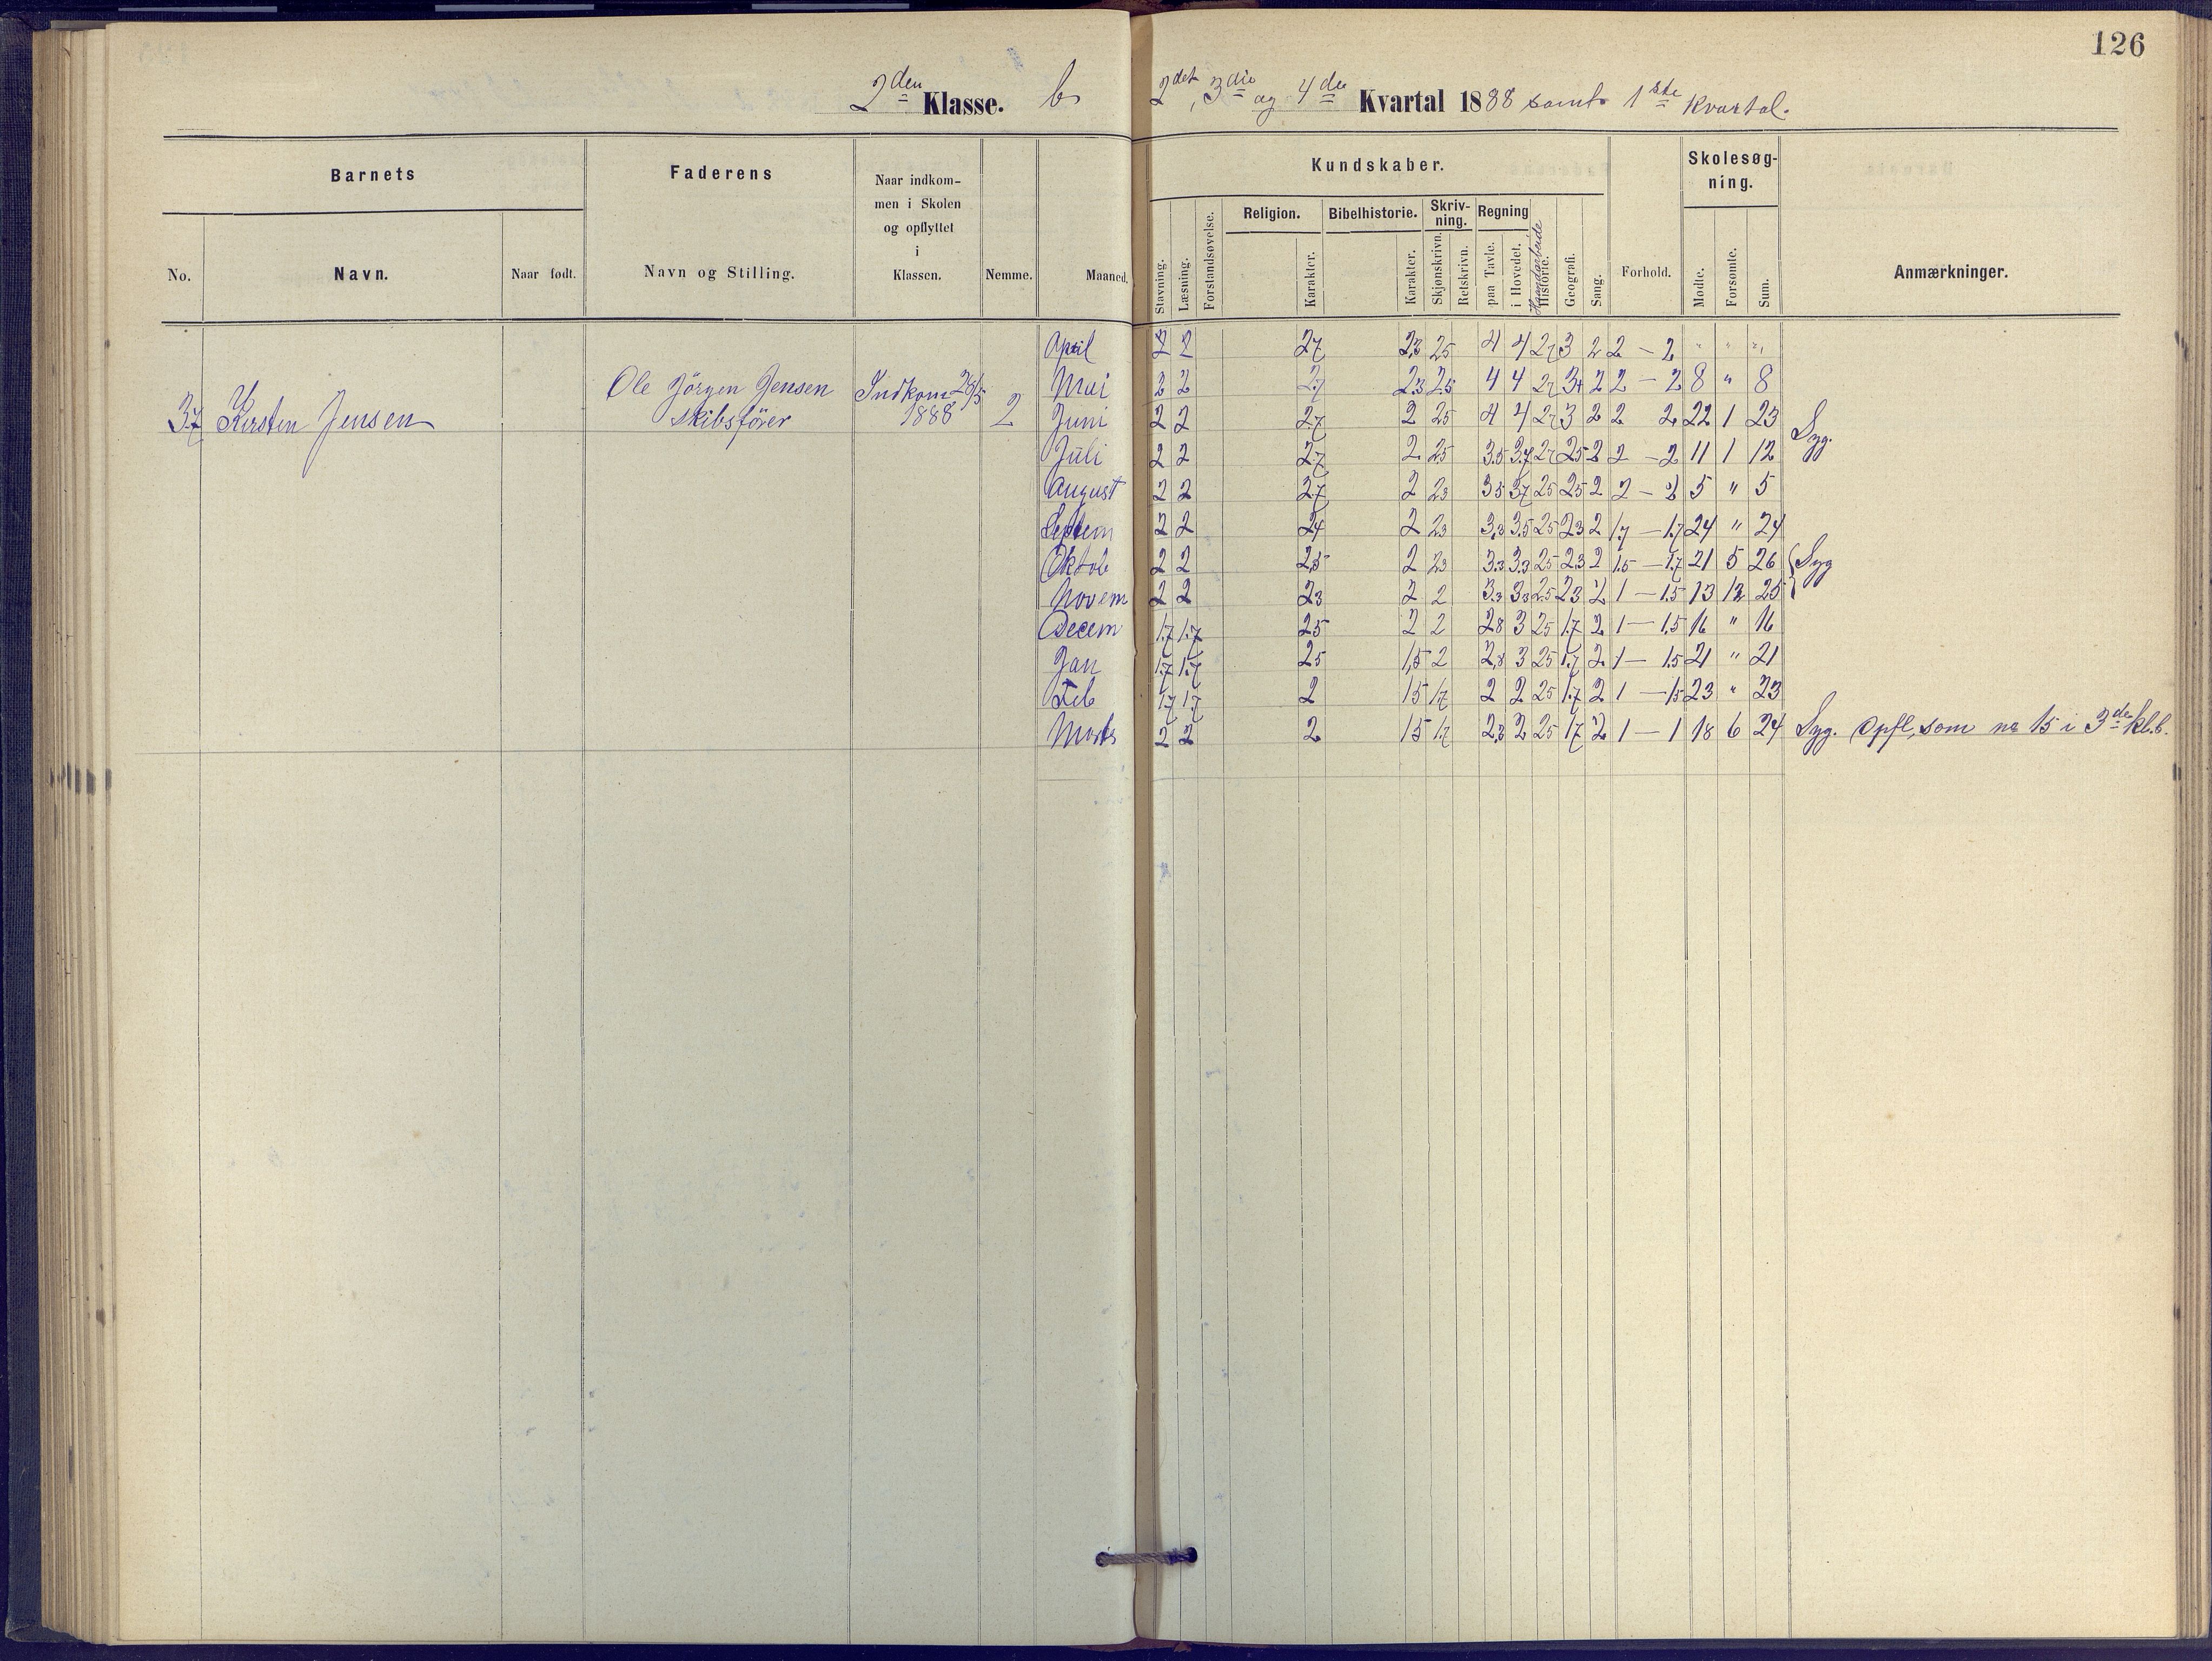 126
2den Klasse. b
2det, 3die og 4de Kvartal 1888 samt 1ste Kvartal.
Barnets
Faderens
Naar indkom-
men i Skolen
og opflyttet
i
Klassen.
Kundskaber.
Skolesøg-
ning.
No.
Navn.
Naar født.
Navn og Stilling.
Nemme.
Maaned.
Stavning.
Læsning.
Forstandsøvelse.
Religion.
Karakter.
Bibelhistorie.
Karakter.
Skriv-
ning.
Skjønskrivn.
Retskrivn.
Regning
paa Tavle.
i Hovedet.
Haandarbeide
Historie.
Geografi.
Sang.
Forhold.
Mødte.
Forsømte.
Sum.
Anmærkninger.
37 Kirsten Jensen
Ole Jörgen Jensen
Skibsförer
Indkom 25/5
1888
2
April 2 2 2,7 2,3 2,5 4 4 2,7 3 2 2 - 2 " " "
Mai 2 2 2,7 2,3 2,5 4 4 2,7 3+ 2 2 - 2 8 " 8
Juni 2 2 2,7 2 2,5 4 4 2,7 3 2 2 2 22 1 23
Syg.
Juli 2 2 2,7 2 2,5 3,5 3,7 2,7 2,5 2 2 - 2 11 1 12
August 2 2 2,7 2 2,3 3,5 3,7 2,5 2,5 2 2 - 2 5 " 5
Septem 2 2 2,4 2 2,3 3,3 3,5 2,5 2,3 2 1,7 - 1,7 24 " 24
Oktob 2 2 2,5 2 2,3 3,3 3,3 2,5 2,3 2 1,5 - 1,7 21 5 26 Syg
Novem 2 2 2,3 2 2 3,3 3,3 2,5 2,3 2 1 - 1,5 13 12 25
Decem 1,7 1,7 2,5 2 2 2,8 3 2,5 1,7 2 1 - 1,5 16 " 16
Jan 1,7 1,7 2,5 1,5 2 2,8 3 2,5 1,7 2 1 - 1,5 21 " 21
Feb 1,7 1,7 2 1,5 1,7 2 2 2,5 1,7 2 1 - 1,5 23 " 23
Marts 2 2 2 1,5 1,7 2,3 2 2,5 1,7 2 1 - 1 18 6 24 Syg. Opfl, som no 15 i 3de kl.b.